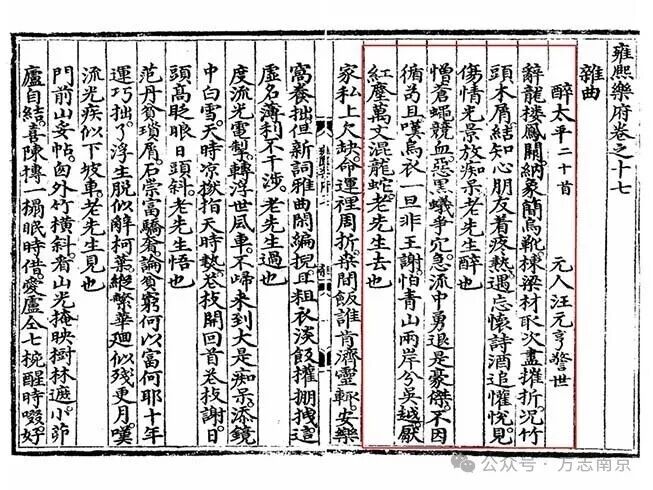 雍熙樂府卷之十七
雜曲
醉太平二十首 元人汪元亨警世
辭龍楼鳳闕納象簡烏靴棟梁材取次盡摧折况竹
頭木屑結知心朋友着疼熱遇忘懷詩酒追懽恱見
傷情光景放痴呆老先生醉也
憎蒼蠅競血惡黒蟻爭穴急流中勇退是豪傑不因
循苟且嘆烏衣一旦非王謝怕青山兩岸分吳越厭
紅塵萬丈混龍蛇老先生去也
家私上欠缺命運裡周折桒間飯誰肯濟靈輒安樂
窩養拙但新詞雅曲閑編捏且粗衣淡飯權掤拽這
虚名薄利不干涉老先生過也
度流光電掣轉浮世風車不歸來到大是痴呆添鏡
中白雪天時凉撚指天時熱花枝開回首花枝謝日
頭高眨眼日頭斜老先生悟也
范丹貧瑣屑石崇富驕奢論貧窮何以富何耶十年
運巧拙了浮生脱似解柯葉縱繁華廻似殘更月嘆
流光疾似下坡車老先生見也
門前山妥帖窗外竹横斜看山光掩映樹林遮小茆
廬自結喜陳摶一榻眠時借愛盧仝七椀醒時啜好
公众号 · 方志南京